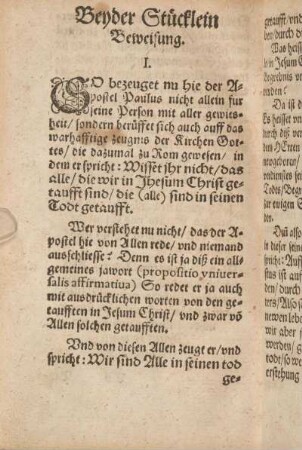 Beyder Stücklein
Beweisung.
I.
SO bezeuget nu hie der A-
postel Paulus nicht allein fur
seine Person mit aller gewis-
heit/ sondern berüffet sich auch auff das
warhafftige zeugnis der Kirchen Got-
tes/ die dazumal zu Rom gewesen/ in
dem er spricht: Wisset jhr nicht/ das
alle/ die wir in Jhesum Christ ge-
taufft sind/ die (alle) sind in seinen
Todt getaufft.
Wer verstehet nu nicht/ das der A-
postel hie von Allen rede/ vnd niemand
ausschliesse? Denn es ist ja diß ein all-
gemeines jawort (propositio vniuer-
salis affirmatiua) So redet er ja auch
mit ausdrücklichen worten von den ge-
taufften in Jesum Christ/ vnd zwar võ
Allen solchen getaufften.
Vnd von diesen Allen zeugt er/ vnd
spricht: Wir sind Alle in seinen tod
ge-